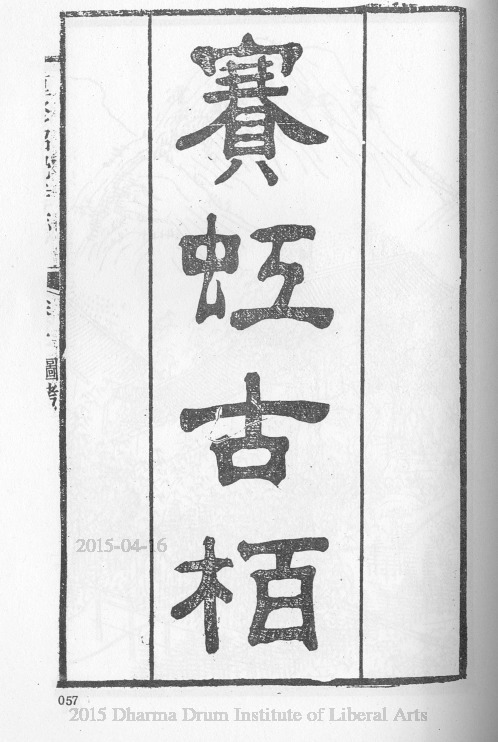 賽虹古栢
圖考
2015-04-16
057
2015 Dharma Drum Institute of Liberal Arts